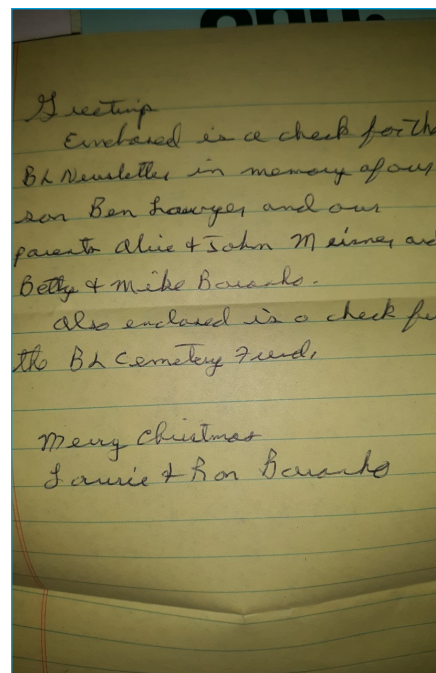 Greetings
Enclosed is a check for the
BL Newsletter in memory of our
son Ben Sawyer and our
parents Alice & John Meisner and
Betty & Mike Baranko.
Also enclosed is a check for
the BL Cemetery Fund.
Merry Christmas
Laurie & Ron Baranko